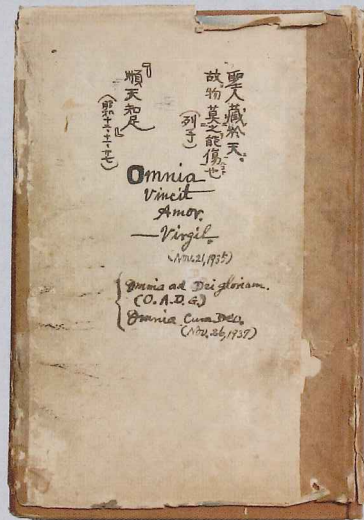 聖人藏於天、
故物莫之能傷也
(列子)
『順天知足』
(昭和十二・十一・廿七)
Omnia
Vincit
Amor.
—Virgil.
(Nov. 21, 1935)
Omnia ad Dei gloriam.
(O. A. D. G.)
Omnia Cum Deo.
(Nov. 26, 1937)